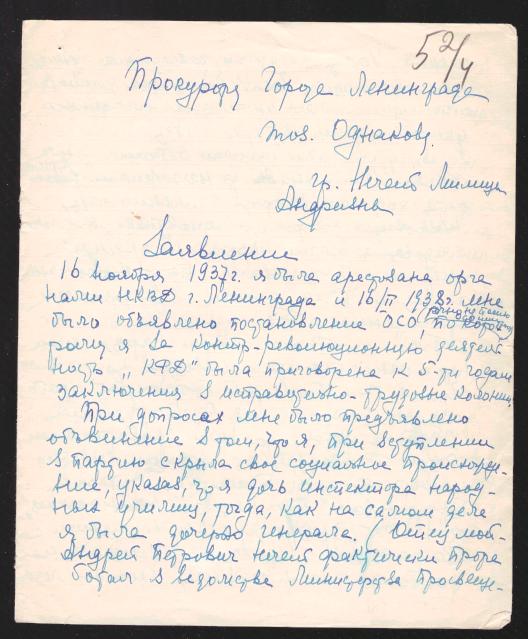 52/4
Прокурору Города Ленинграда
тов. Однакову.
гр. Нечей
Андреевна
Заявление
16 ноября 1937г. я была арестована орга
нами НКВД г. Ленинграда и 16/II 1938г. мне
было объявлено постановление ОСО, по
я за контр-революционную деятель
ность „КРД" была приговорена к 5-ти годам
заключения в исправительно-трудовые колонии.
При допросах мне было предъявлено
обвинение в том, что я, при вступлении
в партию скрыла свое социальное происхожде-
ние, указав, что я дочь инспектора народ-
ных училищ, тогда, как на самом деле
я была дочерью генерала. (Отец мой-
Андрей Петрович Нечей фактически прора
ботал в ведомстве Министерства Просвеще-